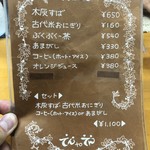 木灰すば ¥650
古代米おにぎり ¥160
ぶくぶく茶 ¥540
あまがし ¥330
コーヒー(ホット・アイス) ¥380
オレンジジュース ¥380
<セット>
木灰すば・古代米おにぎり
コーヒー(ホット・アイス)orあまがし
¥1,100